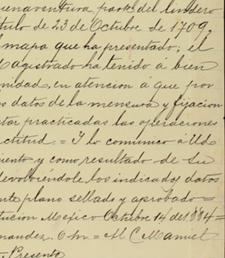 enaventura, parte del lindero
tulo de 23 de Octubre de 1709,
mapa que ha presentado; el
agistrado ha tenido á bien
nidad, en atencion á que por
os datos de la mensura y fijacion
tar practicadas las operaciones
ctitud. = Y lo comunico á Ud.
uento y como resultado de su
devolviéndole los indicados datos
nte plano sellado y aprobado =
tucion Mejico Octubre 14 del 884 =
nandez. O. m. = M. C. Manuel
Presente